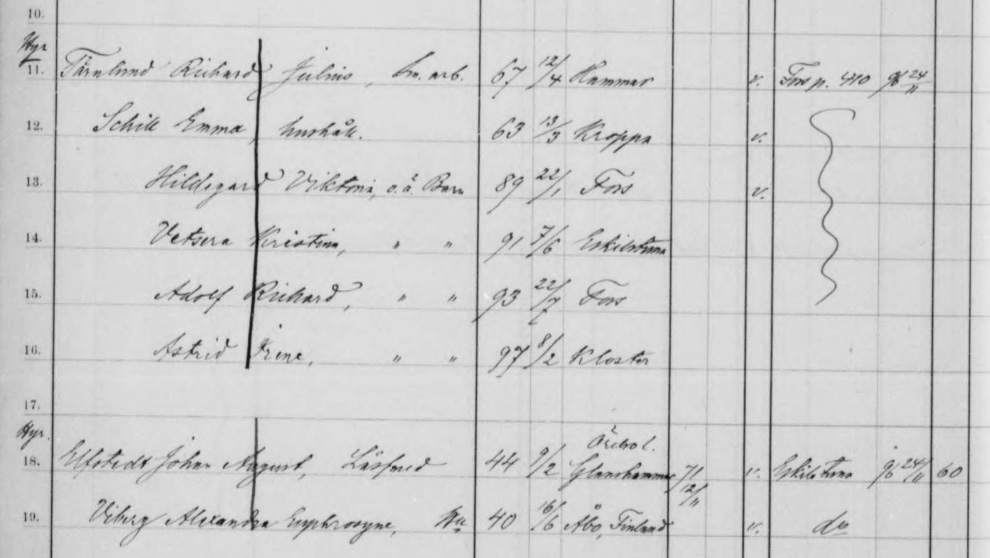 10.
Hyr
11. Tärnlund Richard Julius, Sm. arb. 67 12/4 Hammar v. Fors p. 410 96 24/11
12. Schill Emma, hushåll. 63 13/3 Kroppa v.
13. Hildegard Viktoria, o.ä. Barn 89 22/1 Fors v.
14. Vetsera Kristina, " " 91 7/6 Eskilstuna
15. Adolf Richard, " " 93 22/7 Fors
16. Astrid Irene, " " 97 8/2 Kloster
17.
Hyr. Örebro l.
18. Elfstedt Johan August, Låssmed 44 9/2 Glanshammar 71 12/11 v. Eskilstuna 96 24/11 60
19. Viberg Alexandra Euphrosyne, Hu 40 16/6 Åbo, Finland v. do